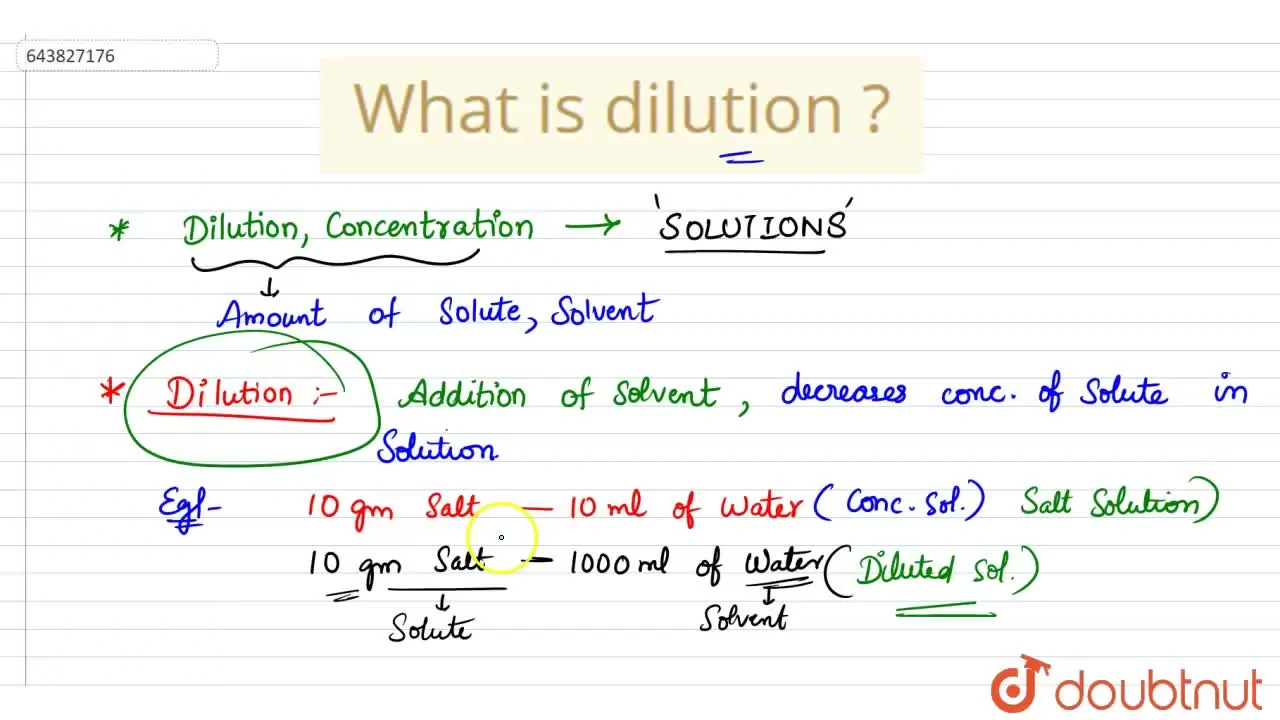 643827176
What is dilution ?
* Dilution, Concentration → 'SOLUTIONS'
↓
Amount of Solute, Solvent
* Dilution :- Addition of Solvent, decreases conc. of Solute in
Solution
Egl- 10 gm Salt — 10 ml of Water (Conc. Sol.) Salt Solution)
10 gm Salt — 1000 ml of Water (Diluted Sol.)
↓ ↓
Solute Solvent
doubtnut